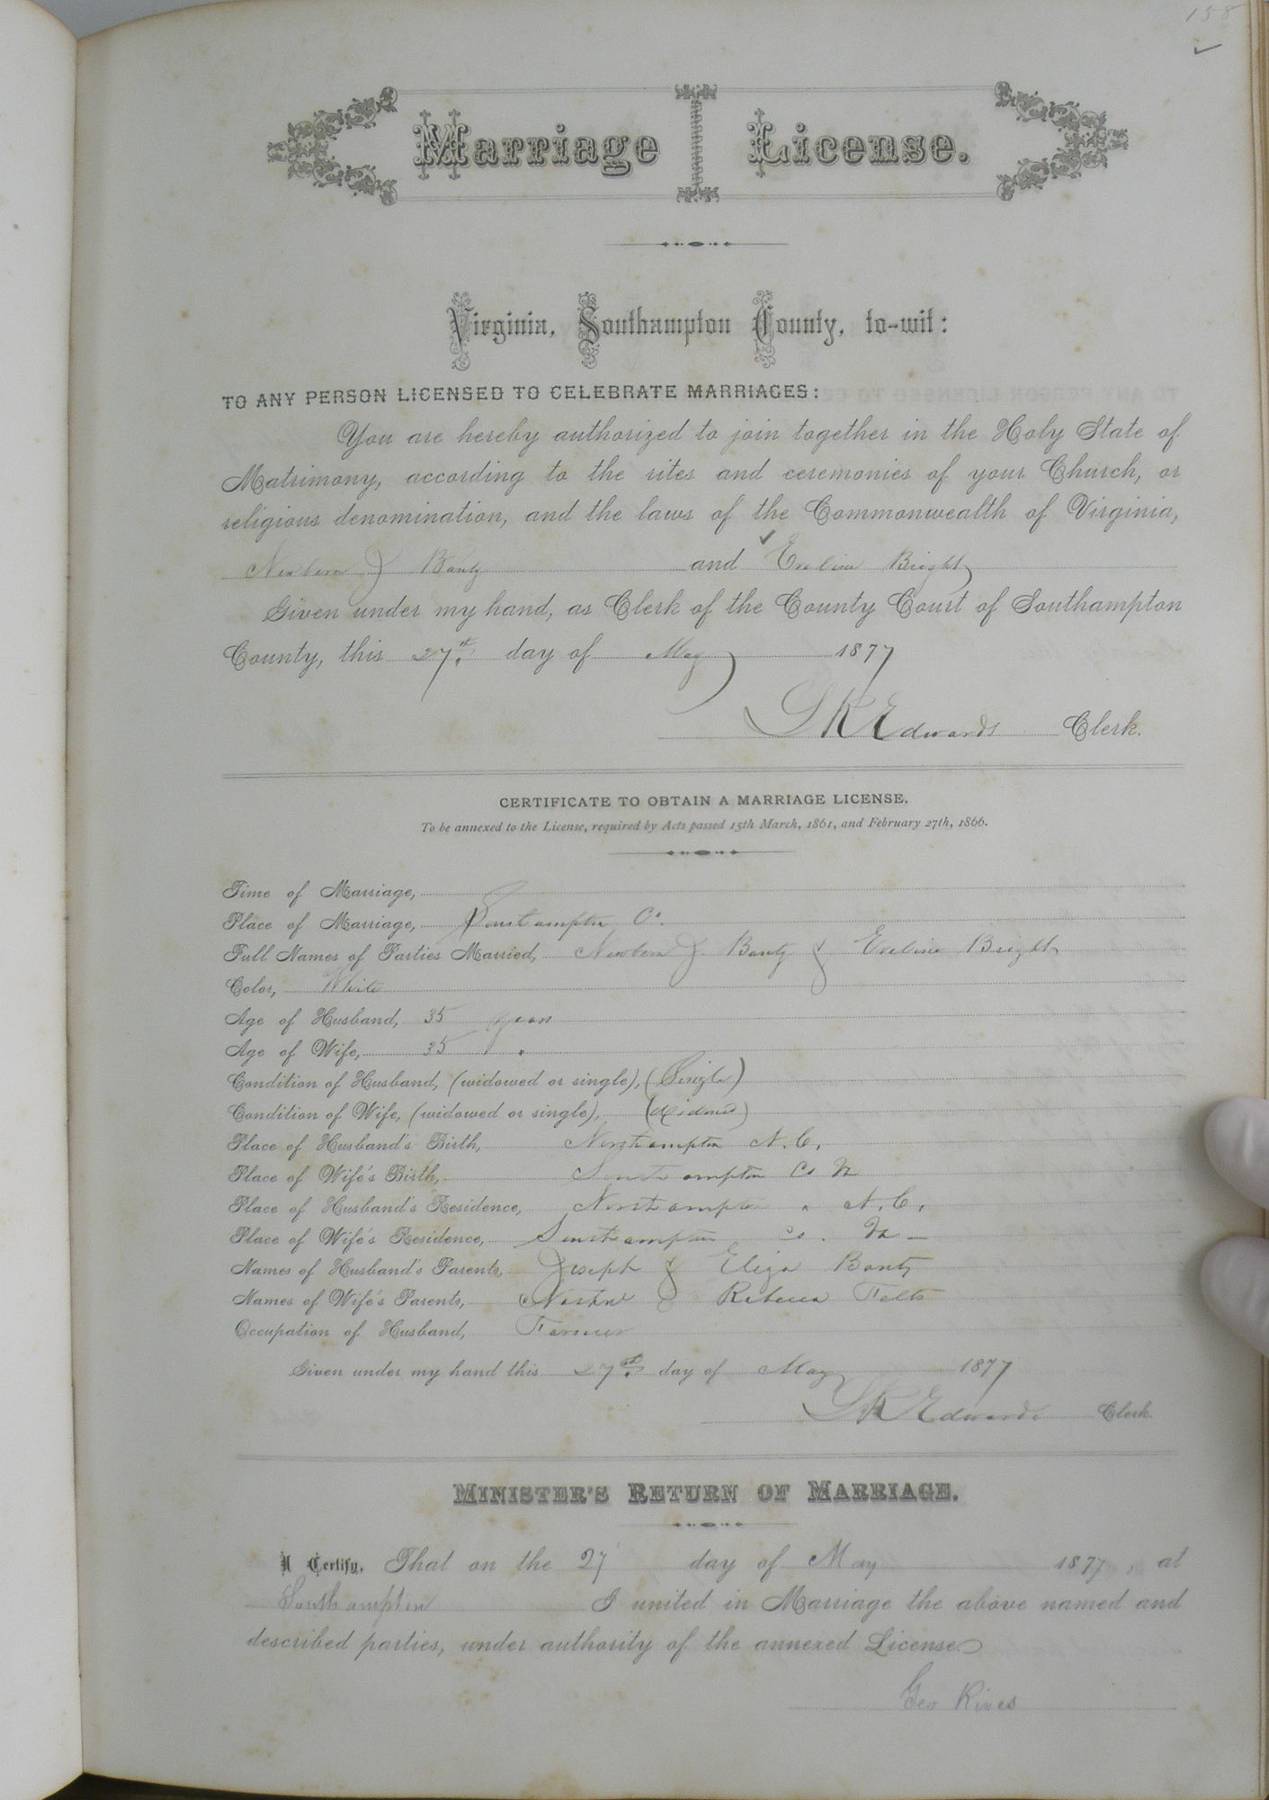 158
Marriage License.
Virginia, Southampton County, to-wit:
TO ANY PERSON LICENSED TO CELEBRATE MARRIAGES:
You are hereby authorized to join together in the Holy State of
Matrimony, according to the rites and ceremonies of your Church, or
religious denomination, and the laws of the Commonwealth of Virginia,
J and Eveline Bright
Given under my hand, as Clerk of the County Court of Southampton
County, this 27th day of May 1877
L R Edwards Clerk.
CERTIFICATE TO OBTAIN A MARRIAGE LICENSE.
To be annexed to the License, required by Acts passed 15th March, 1861, and February 27th, 1866.
Time of Marriage,
Place of Marriage, Southampton Co.
Full Names of Parties Married, J & Eveline Bright
Color, White
Age of Husband, 35 years
Age of Wife, 35 "
Condition of Husband, (widowed or single), (Single)
Condition of Wife, (widowed or single), (Widowed)
Place of Husband's Birth, Northampton N.C.
Place of Wife's Birth, Southampton Co Va
Place of Husband's Residence, Northampton " N.C.
Place of Wife's Residence, Southampton Co. Va
Names of Husband's Parents, Joseph & Eliza
Names of Wife's Parents, & Rebecca Felts
Occupation of Husband, Farmer
Given under my hand this 27th day of May 1877
L R Edwards Clerk
MINISTER'S RETURN OF MARRIAGE.
I Certify, That on the 27 day of May 1877, at
Southampton I united in Marriage the above named and
described parties, under authority of the annexed License.
Geo Rives